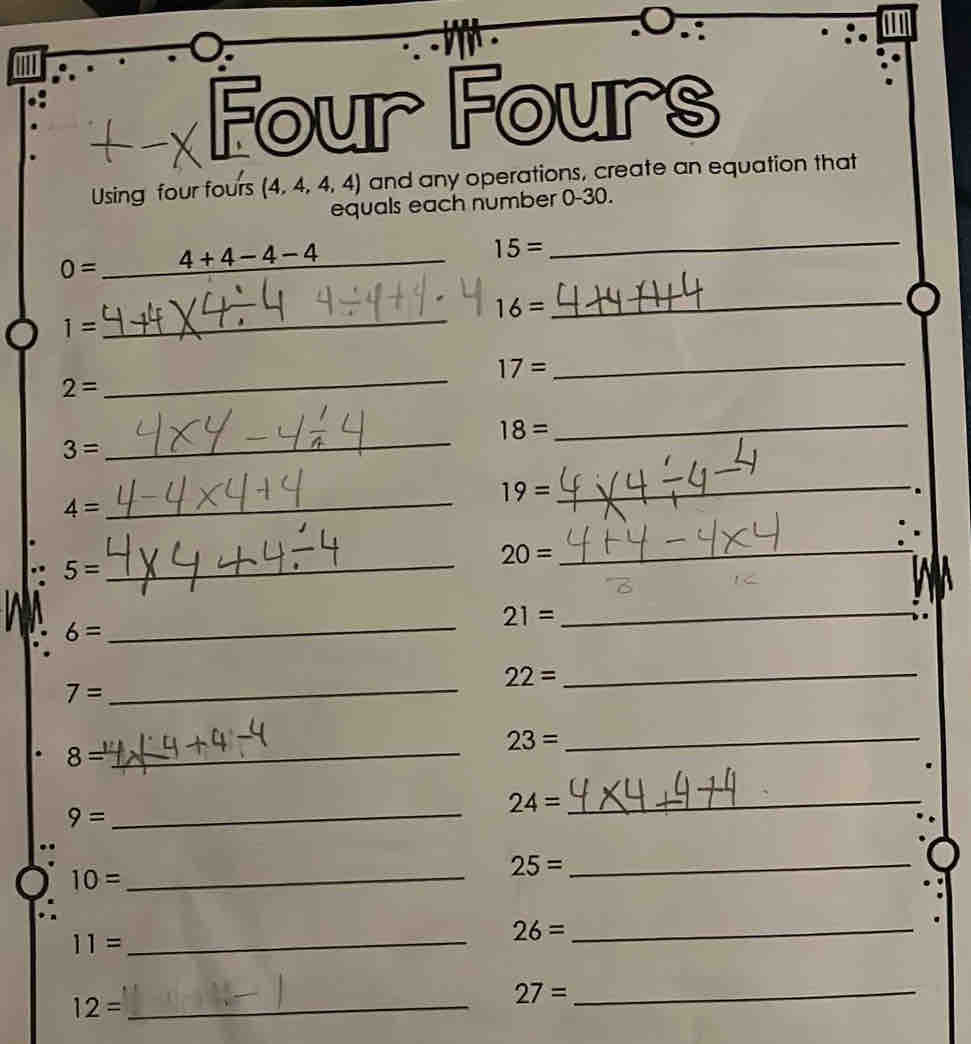 + - x ÷
Four Fours
Using four fours (4, 4, 4, 4) and any operations, create an equation that
equals each number 0-30.
0 = 4 + 4 - 4 - 4
1 = 4 + 4 x 4 ÷ 4 4 ÷ 4 + 4 · 4
2 =
3 = 4 x 4 - 4 ÷ 4
4 = 4 - 4 x 4 + 4
5 = 4 x 4 + 4 ÷ 4
6 =
7 =
8 = 4 + 4 - 4
9 =
10 =
11 =
12 =
15 =
16 = 4 + 4 + 4 + 4
17 =
18 =
19 = 4 x 4 ÷ 4 - 4
20 = 4 + 4 - 4 x 4
21 =
22 =
23 =
24 = 4 x 4 + 4 + 4
25 =
26 =
27 =